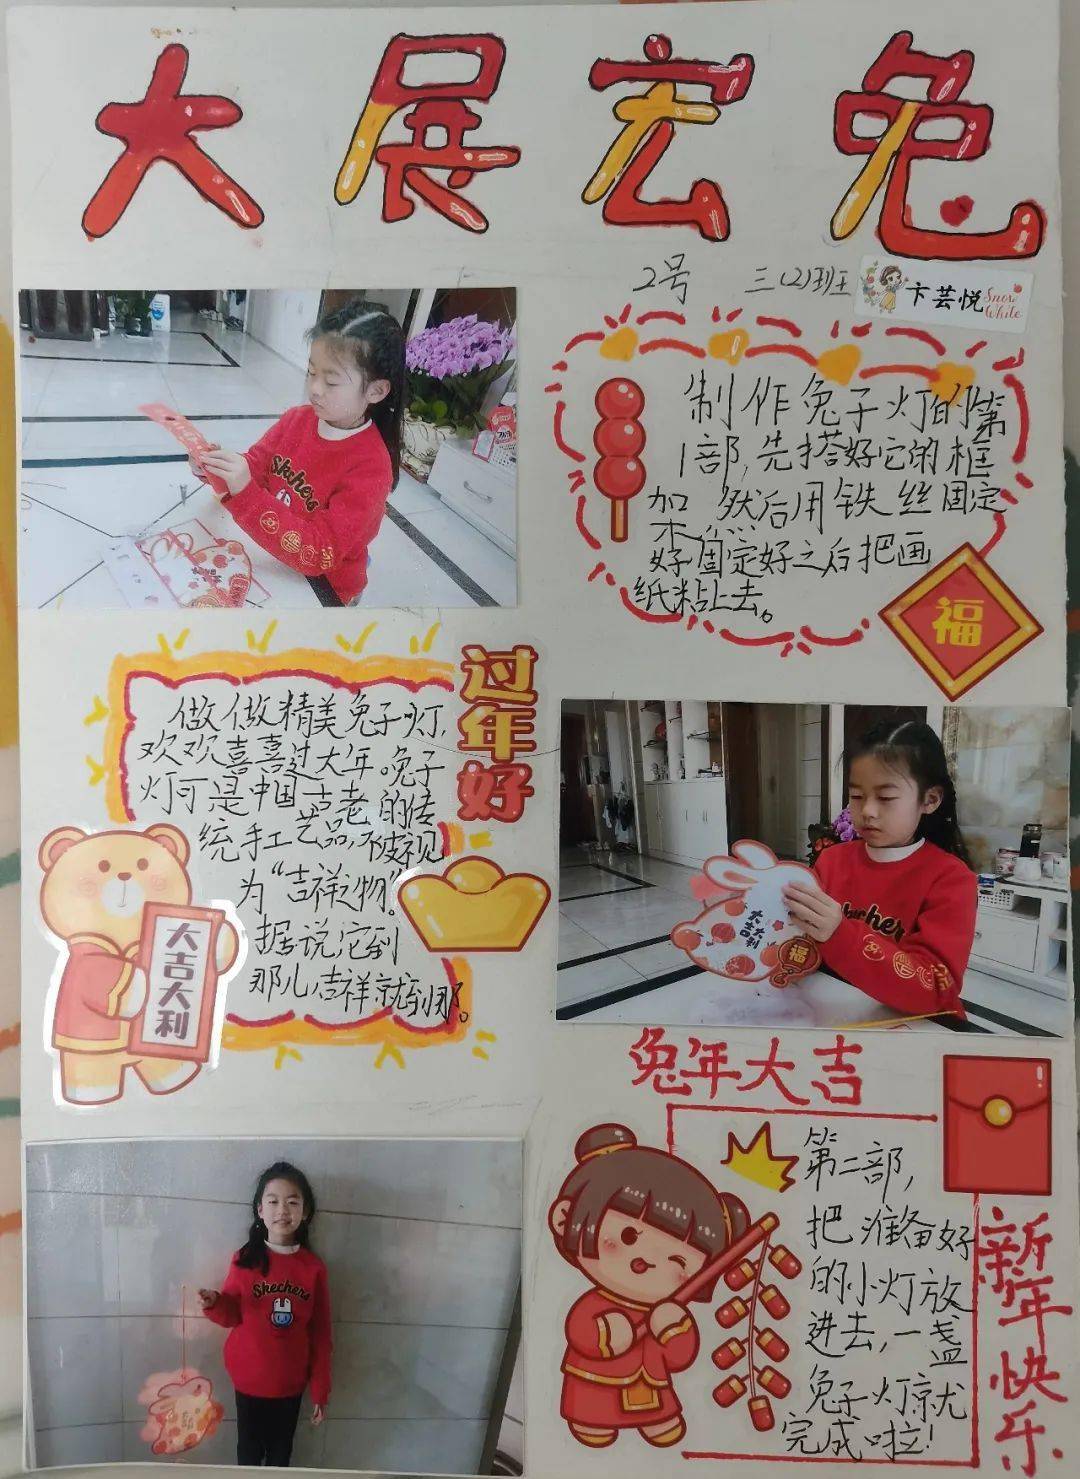 大展宏兔
2号 三(2)班
卞芸悦
Snow
White
制作兔子灯的第
1部,先搭好它的框
加 然后用铁丝固定
好固定好之后把画
纸粘上去。
福
过年好
做做精美兔子灯,
欢欢喜喜过大年。兔子
灯可是中国古老的传
统手工艺品,被视
为“吉祥物”。
据说它到
那儿,吉祥就到那。
大吉大利
Skechers
大吉
大利
福
Skechers
兔年大吉
第二部,
把准备好
的小灯放
进去,一盏
兔子灯就
完成啦!
新年快乐
Skechers